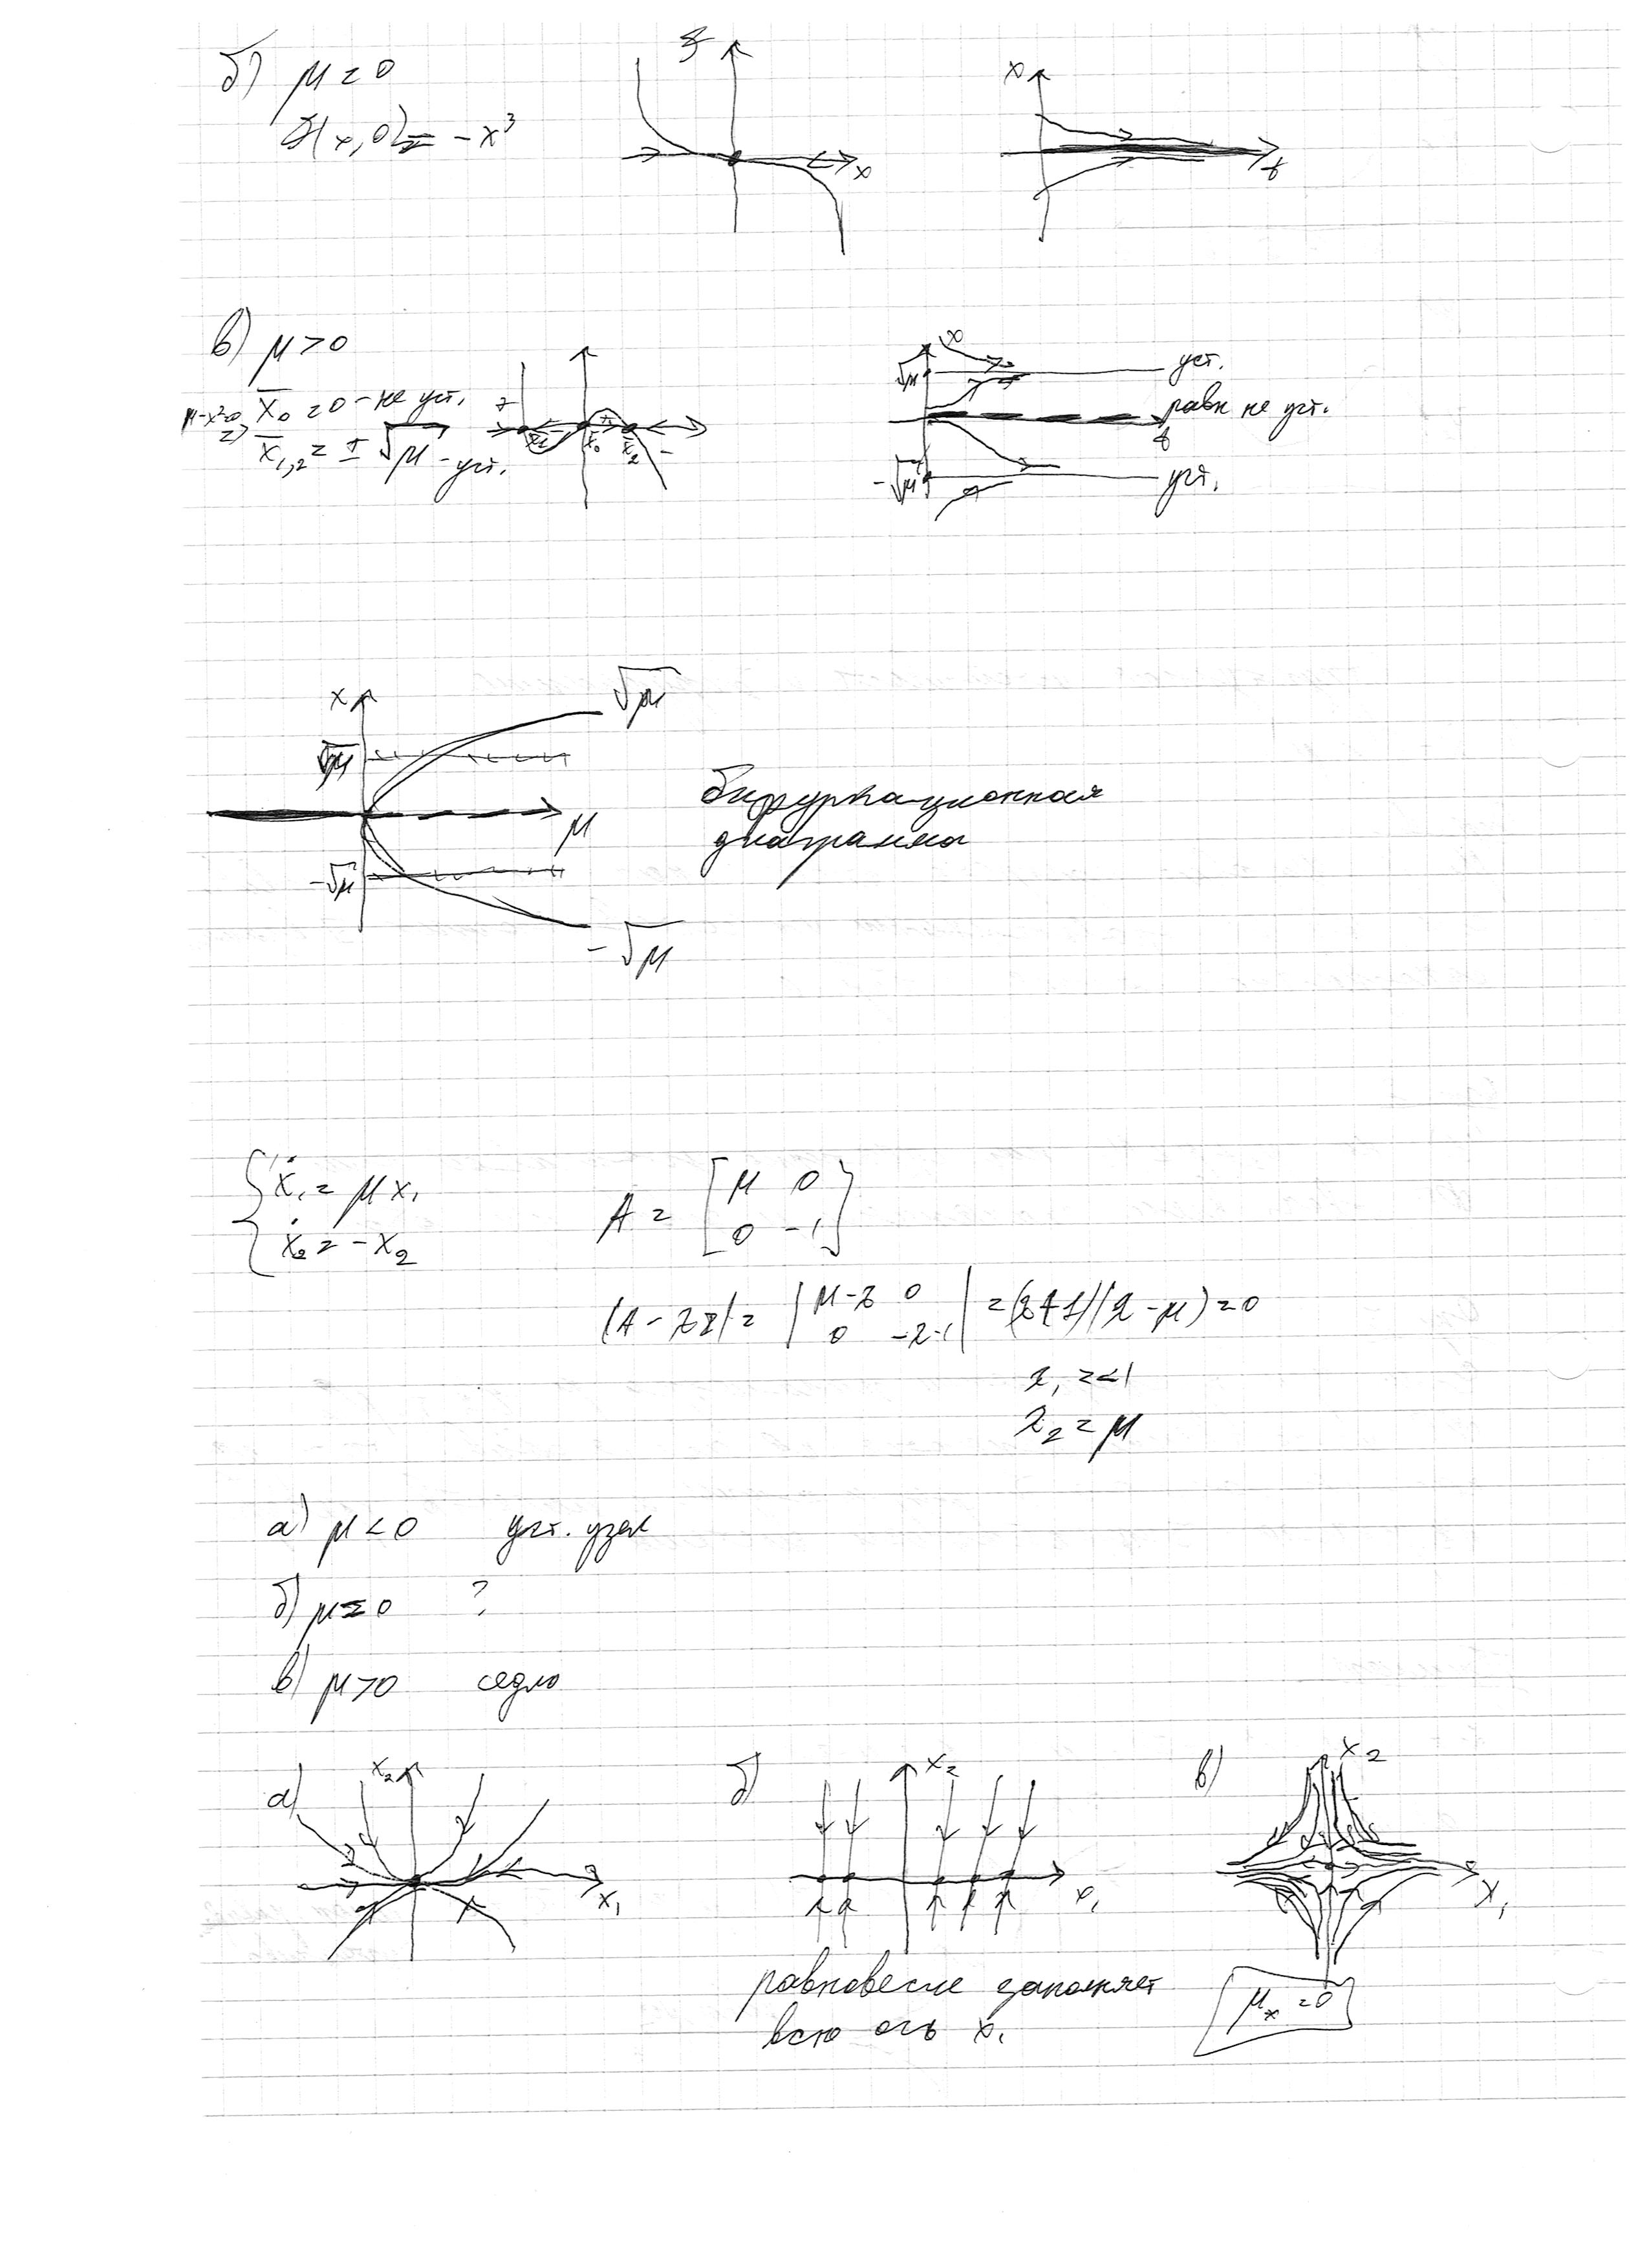 б) μ = 0
f(x, 0) = -x³
f
x
x
t
в) μ > 0
μ-x²=0 x̄₀ = 0 - не уст.
=> x̄₁,₂ = ± √μ - уст.
x₁ x₀ x₂
x
√μ уст.
равн не уст.
t
-√μ уст.
x √μ
√μ
μ
-√μ
-√μ
бифуркационная
диаграмма
{ ẋ₁ = μ x₁
ẋ₂ = - x₂
A = [ μ 0
0 -1 ]
|A - λI| = | μ-λ 0
0 -λ-1 | = (λ+1)(λ-μ) = 0
λ₁ = -1
λ₂ = μ
а) μ < 0 уст. узел
б) μ = 0 ?
в) μ > 0 седло
а) x₂
x₁
б) x₂
x₁
в) x₂
x₁
равновесие заполняет
всю ось x₁
μ* = 0